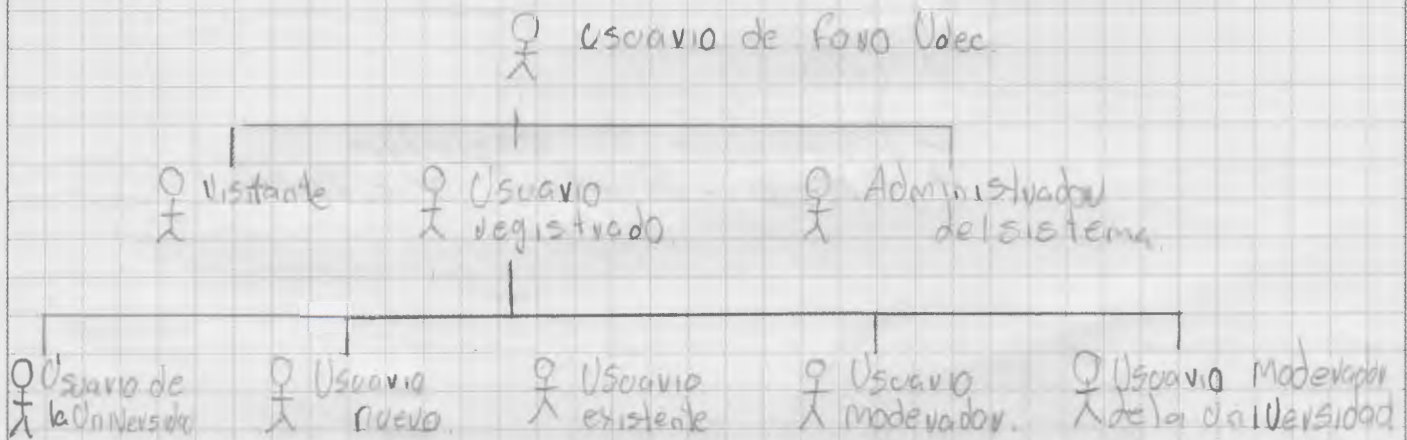 Usuario de foro Udec.
Visitante
Usuario
registrado
Administrador
del sistema.
Usuario de
la Universidad
Usuario
nuevo.
Usuario
existente
Usuario
moderador.
Usuario Moderador
de la Universidad